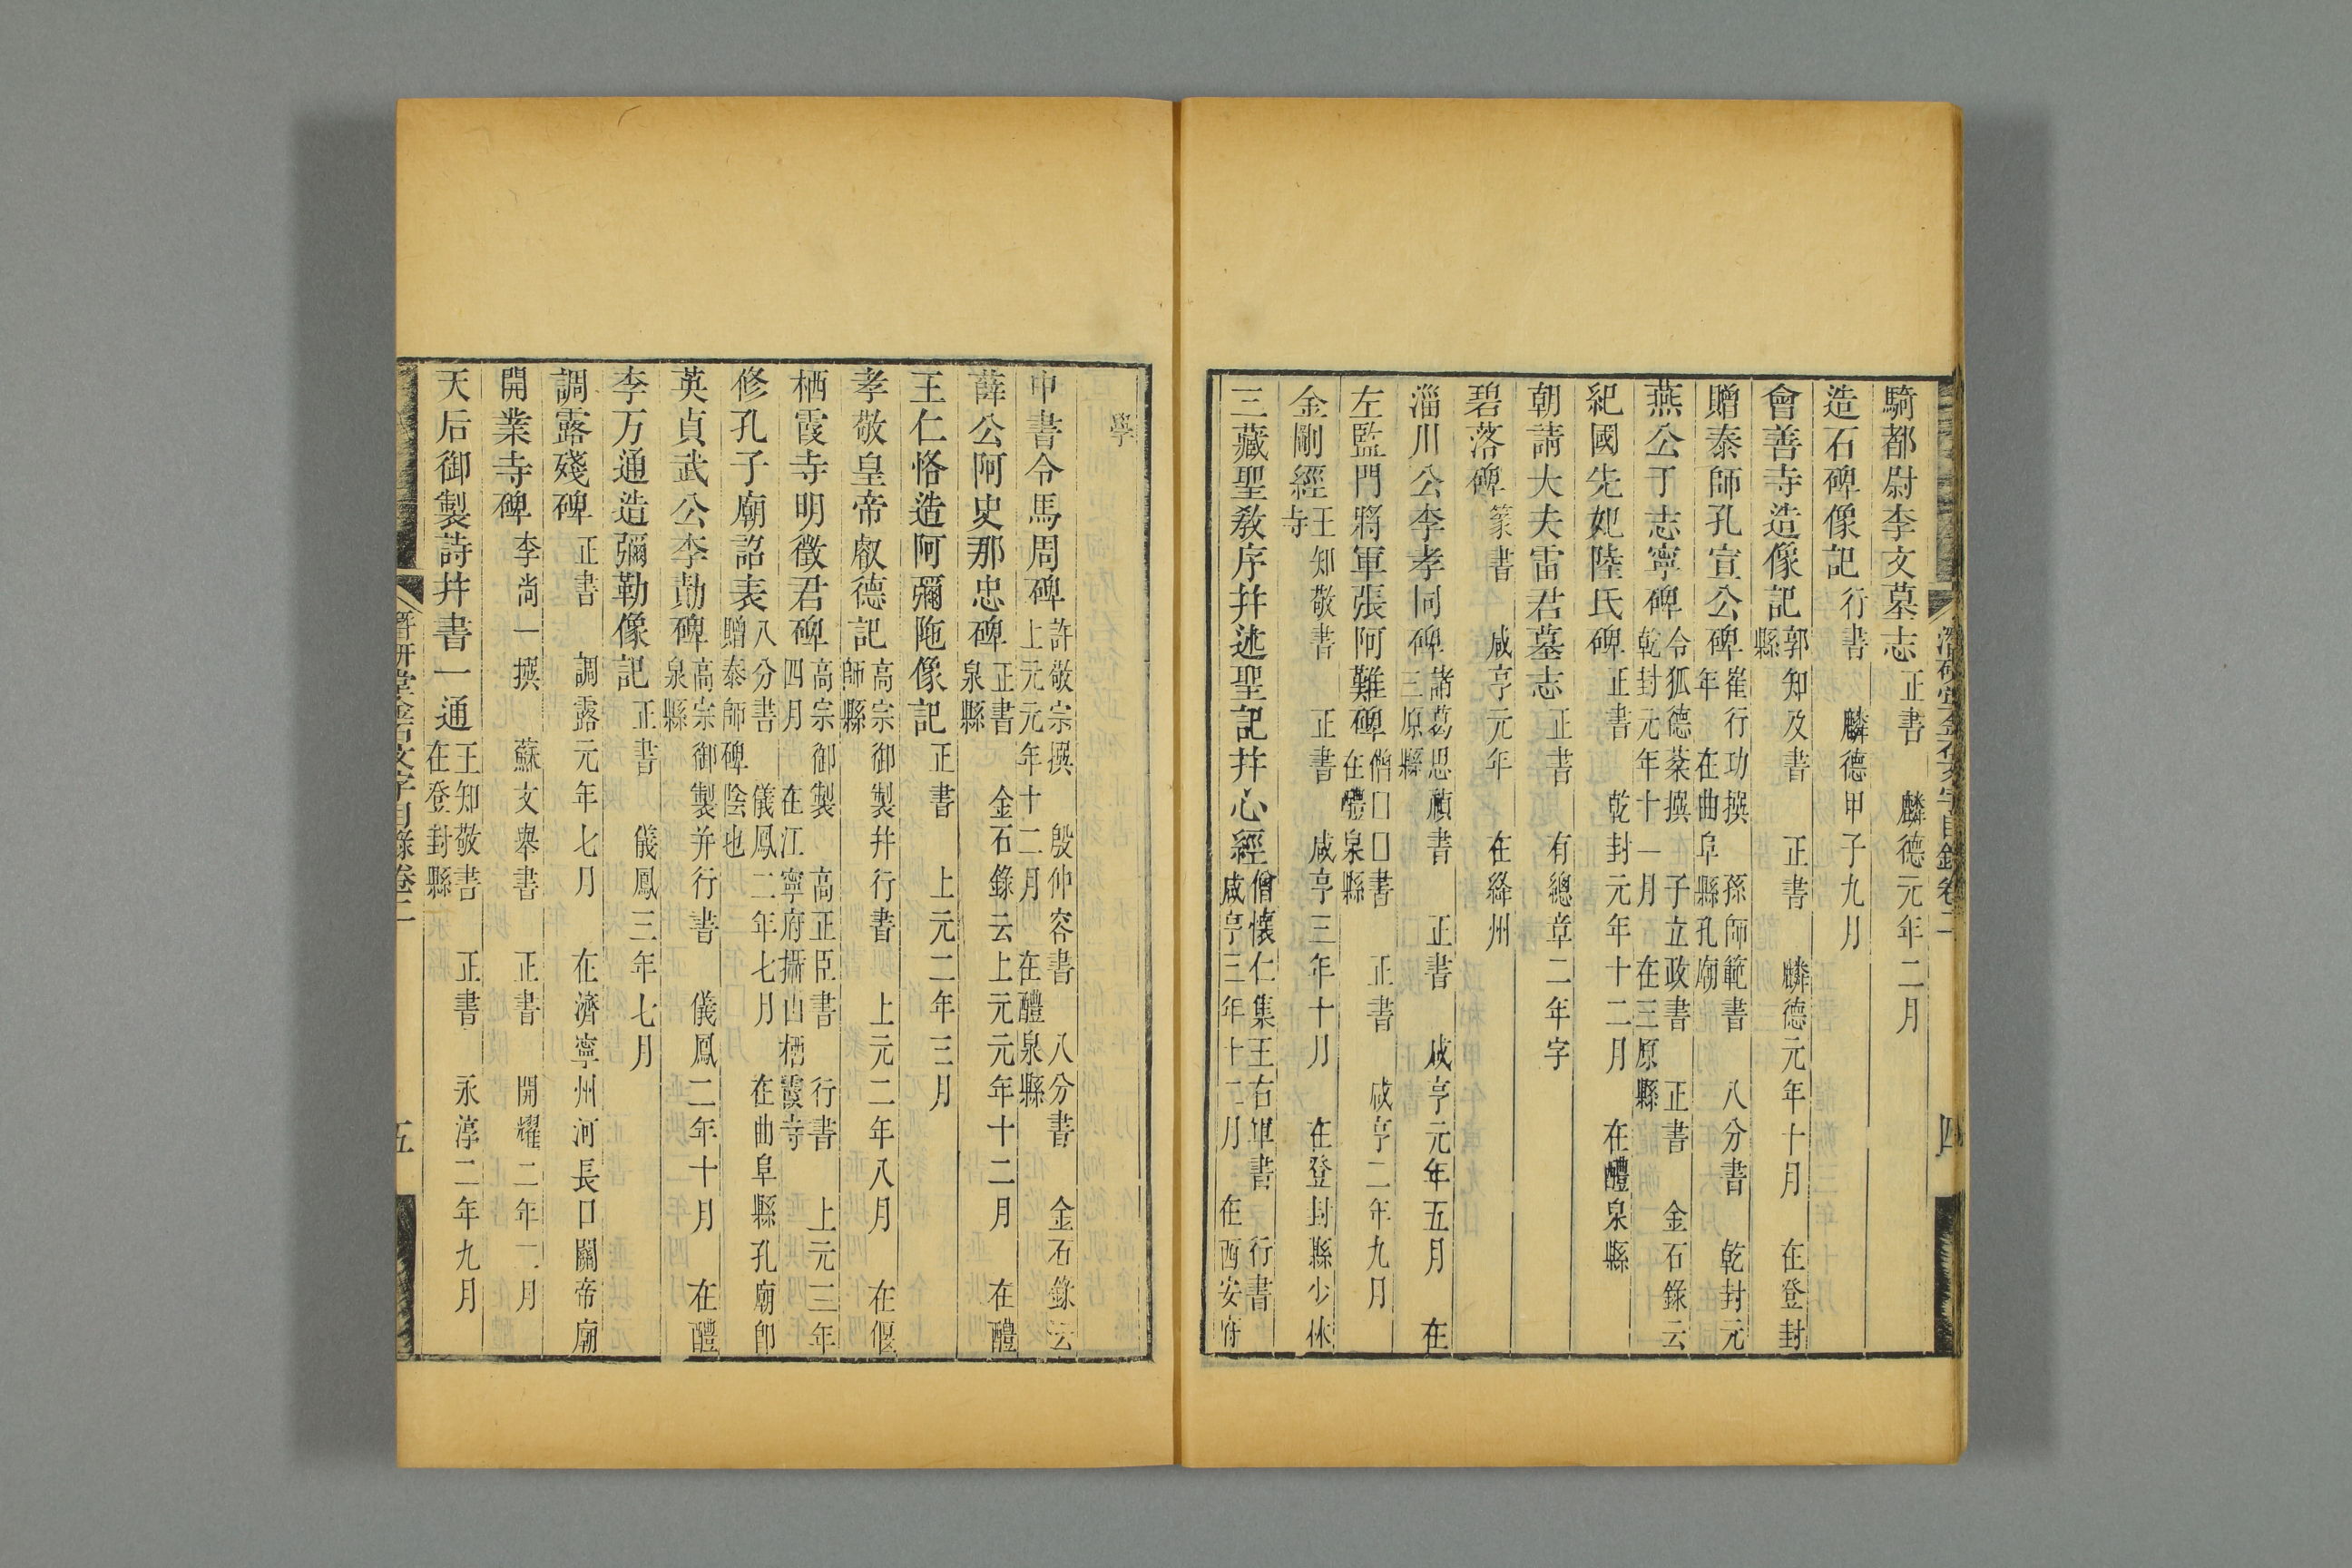 騎都尉李文墓志 正書 麟德元年二月
造石碑像記 行書 麟德甲子九月
會善寺造像記 郭知及書 正書 麟德元年十月 在登封
縣
贈泰師孔宣公碑 崔行功撰 孫師範書 八分書 乾封元
年 在曲阜縣孔廟
燕公于志寧碑 令狐德棻撰 子立政書 正書 金石錄云
乾封元年十一月 在三原縣
紀國先妃陸氏碑 正書 乾封元年十二月 在醴泉縣
朝請大夫雷君墓志 正書 有總章二年字
碧落碑 篆書 咸亨元年 在絳州
淄川公李孝同碑 諸葛思禎書 正書 咸亨元年五月 在
三原縣
左監門將軍張阿難碑 僧□□書 正書 咸亨二年九月
在醴泉縣
金剛經 王知敬書 正書 咸亨三年十月 在登封縣少林
寺
三藏聖敎序并述聖記并心經 僧懷仁集王右軍書 行書
咸亨三年十二月 在西安府
潛研堂金石文字目錄卷二 四
學
中書令馬周碑 許敬宗撰 殷仲容書 八分書 金石錄云
上元元年十二月 在醴泉縣
薛公阿史那忠碑 正書 金石錄云上元元年十二月 在醴
泉縣
王仁恪造阿彌陁像記 正書 上元二年三月
孝敬皇帝叡德記 高宗御製并行書 上元二年八月 在偃
師縣
栖霞寺明徵君碑 高宗御製 高正臣書 行書 上元三年
四月 在江寧府攝山栖霞寺
修孔子廟詔表 八分書 儀鳳二年七月 在曲阜縣孔廟卽
贈泰師碑陰也
英貞武公李勣碑 高宗御製并行書 儀鳳二年十月 在醴
泉縣
李万通造彌勒像記 正書 儀鳳三年七月
調露殘碑 正書 調露元年七月 在濟寧州河長口關帝廟
開業寺碑 李尚一撰 蘇文舉書 正書 開耀二年二月
天后御製詩并書一通 王知敬書 正書 永淳二年九月
在登封縣
潛研堂金石文字目錄卷二 五